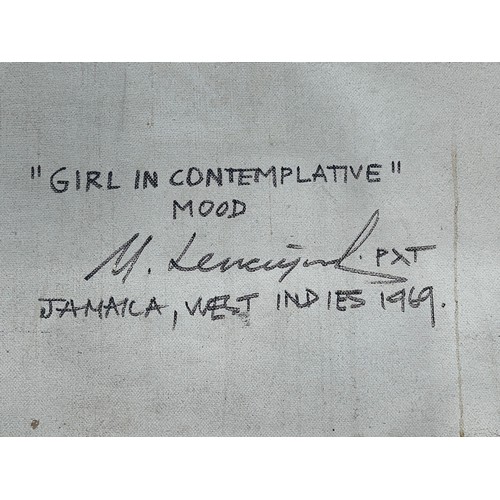 "GIRL IN CONTEMPLATIVE"
MOOD
M. PXT
JAMAICA, WEST INDIES 1969.